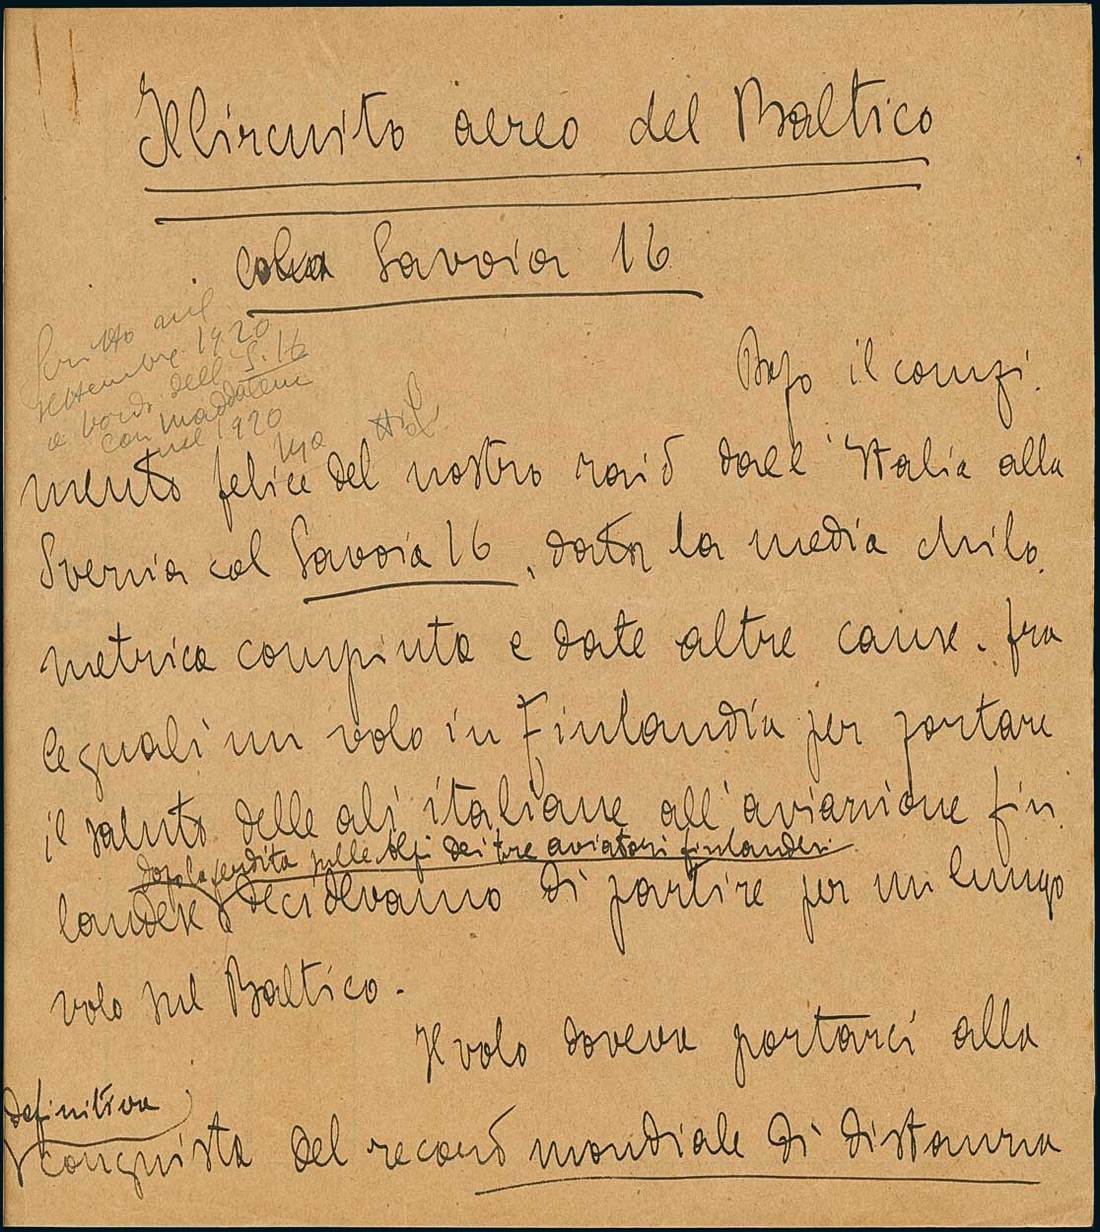 Il circuito aereo del Baltico
Savoia 16
Scritto nel
settembre 1920
a bordo dell S.16
con Maddalena
nel 1920
Dopo il compi-
mento felice del nostro raid dall'Italia alla
Svezia col Savoia 16, data la media chilo-
metrica compiuta e date altre cause - fra
le quali un volo in Finlandia per portare
il saluto delle ali italiane all'aviazione fin
dopo la perdita sulle Alpi dei tre aviatori finlandesi
landese decidevamo di partire per un lungo
volo sul Baltico.
Il volo doveva portarci alla
definitiva
conquista del record mondiale di distanza